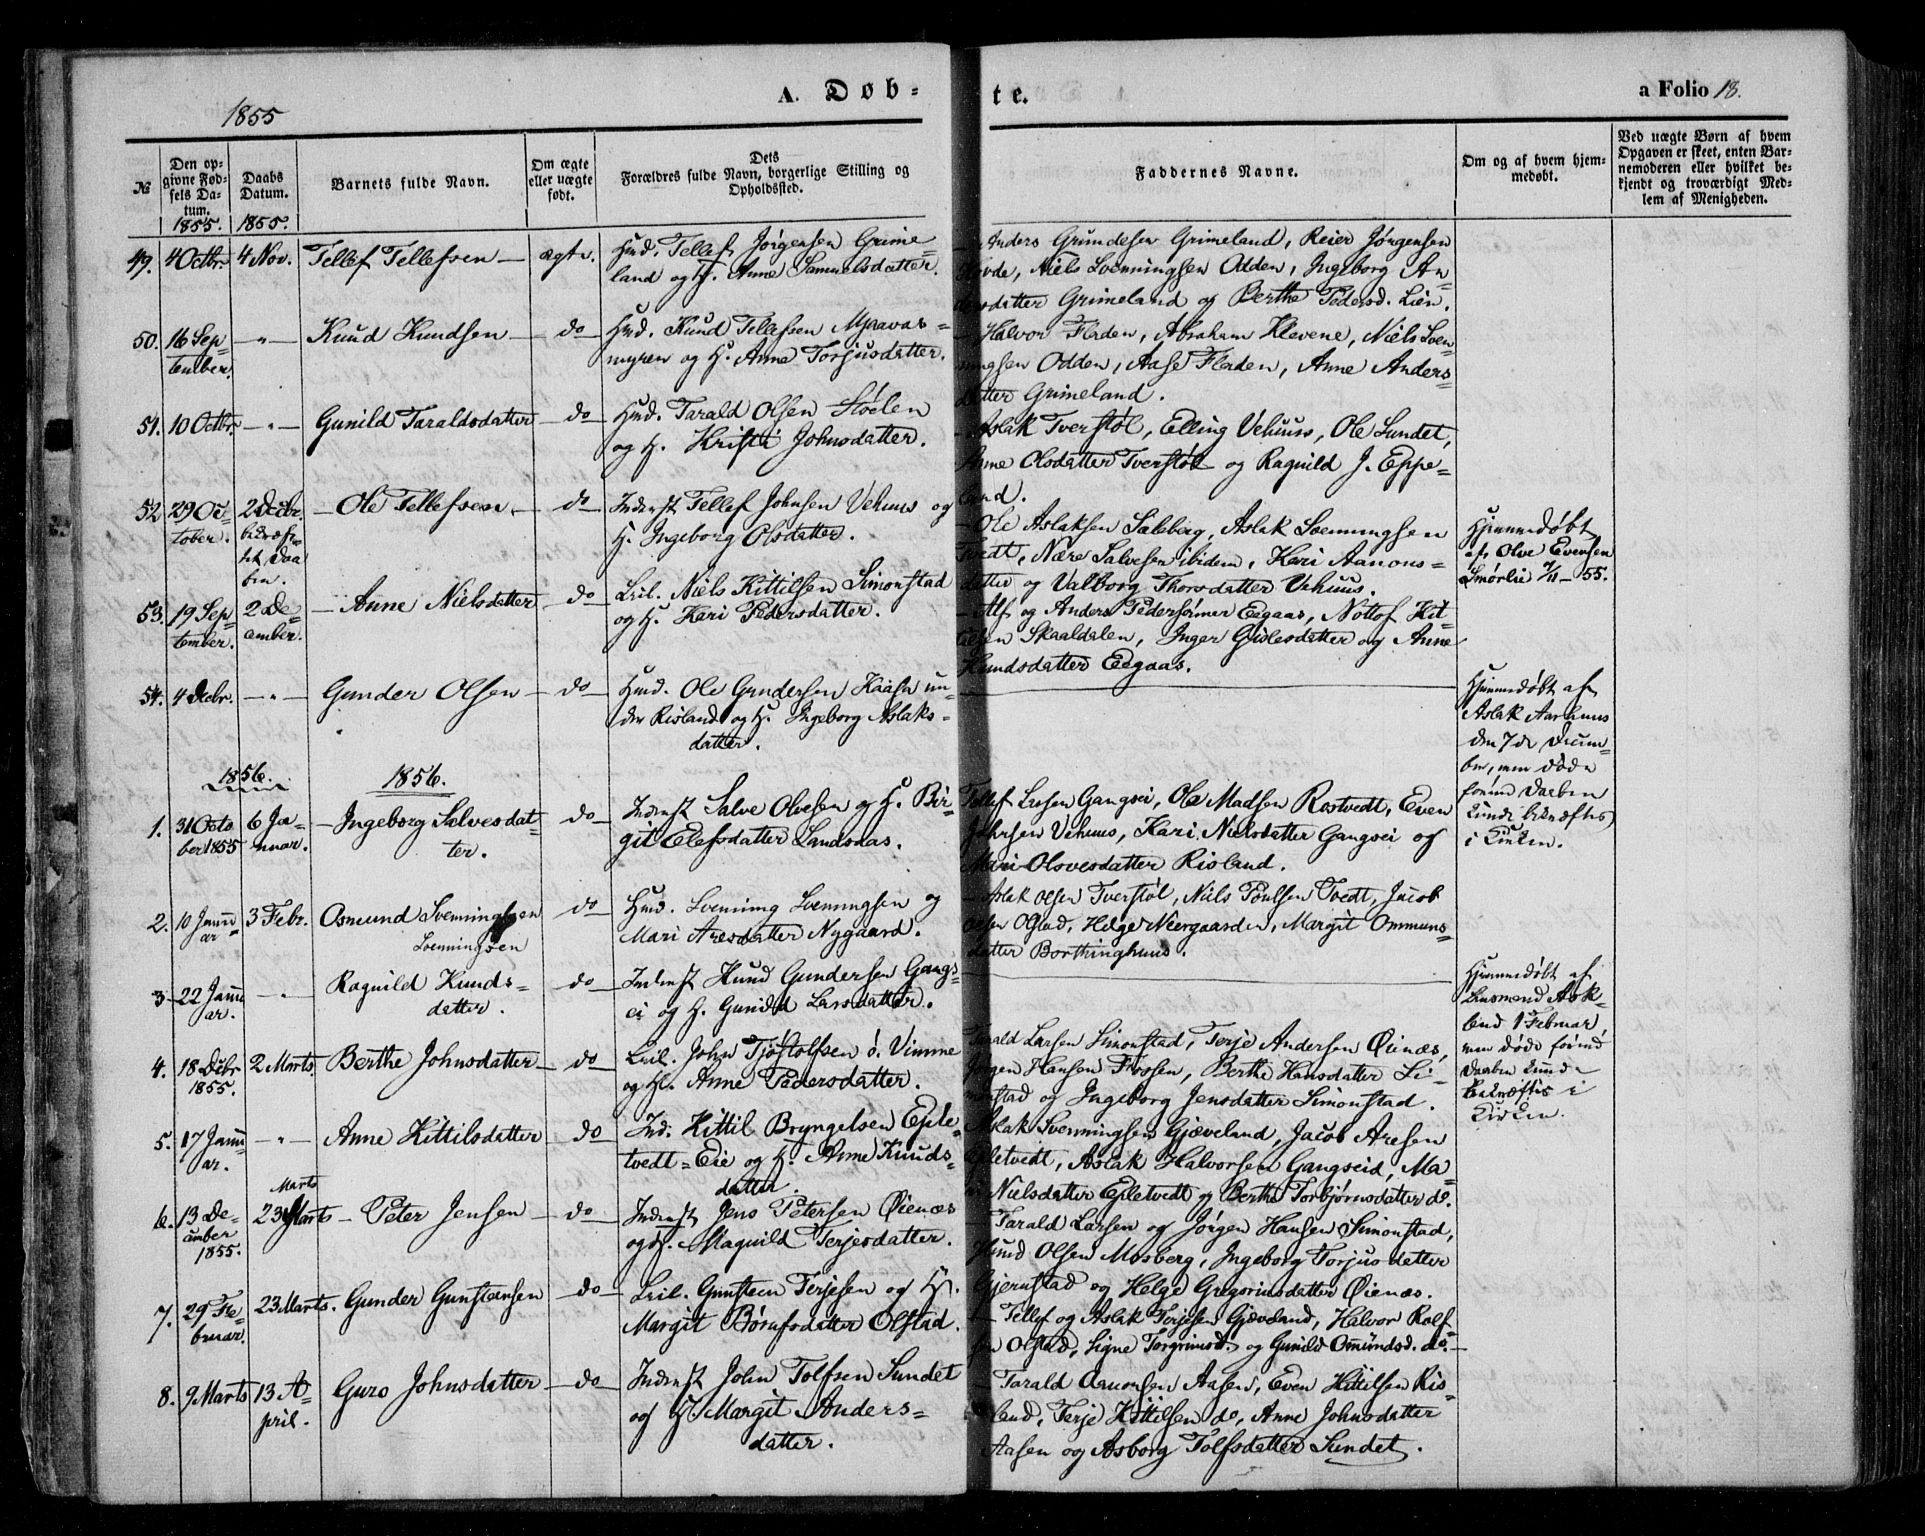 1855
A. Døb=
te.
a Folio 18.
№
Den op-
givne Fød-
sels Da-
tum.
1855.
Daabs
Datum.
1855.
Barnets fulde Navn.
Om ægte
eller uægte
født.
Dets
Forældres fulde Navn, borgerlige Stilling og
Opholdssted.
Faddernes Navne.
Om og af hvem hjem-
medøbt.
Ved uægte Børn af hvem
Opgaven er skeet, enten Bar-
nemoderen eller hvilket be-
kjendt og troværdigt Med-
lem af Menigheden.
49. 4 Octbr. 4 Nov. Tellef Tellefsen — ægte.
Hmd. Tellef Jörgensen Grime=
land og H. Anne Samuelsdatter.
Anders Grundesen Grimeland, Reier Jörgensen
Niels Svenningsen Odden, Ingeborg An
datter Grimeland og Berthe Pedersd. Lien.
50. 16 Sep=
tember. — " — Knud Knudsen — do —
Hmd. Knud Tellefsen Mjaavas=
myren og H. Anne Torjusdatter.
— Halvor Fladen, Abraham Klevene, Niels Sven
ningsen Odden, Aase Fladen, Anne Anders=
datter Grimeland.
51. 10 Octbr. — " — Gunild Taraldsdatter — do —
Hmd. Tarald Olsen Stölen
og H. Kristi Johnsdatter.
Aslak Tverstöl, Elling Vehuus, Ole Sundet,
Anne Olsdatter Tverstöl og Ragnild J. Eppe=
land.
52 29 Oc=
tober. 2 Decbr.
bekræf=
tet Daa
ben.
— Ole Tellefsen — do —
Inderst Tellef Johnsen Vehuus og
H. Ingeborg Olsdatter.
— Ole Aslaksen Sæleberg, Aslak Svenningsen
Tvedt, Nære Salvesen ibidem, Kari Aanons=
datter og Valborg Thorsdatter Vehuus.
Hjemmedöbt
af Olve Evensen
Smörlie 9/11 — 55.
53. 19 Sep=
tember. 2 De=
cember. — Anne Nielsdatter — do —
Leil. Niels Kittilsen Simonstad
og H. Kari Pedersdatter.
— Alf og Anders Pedersönner Eegaas, Nottof Kit=
tilsen Skaaldalen, Inger Gislesdatter og Anne
Knudsdatter Eegaas.
54. 4 Decbr. — " — Gunder Olsen — do —
Hmd. Ole Gundersen Kaasa un=
der Risland og H. Ingeborg Aslaks=
datter.
Hjemmedöbt af
Aslak Aarhuus
den 7de Decem=
ber, men döde
förend Daaben
kunde bekræftes
i Kirken.
1856.
1856.
1. 31 Octo
ber 1855 6 Ja=
nuar. — Ingeborg Salvesdat=
ter. do —
Inderst Salve Olvesen og H. Bir=
git Elefsdatter Landsaas.
Tellef Gangsei, Ole Madsen Rostvedt, Even
Johnsen Vehuus, Kari Nielsdatter Gangsei og
Mari Olvesdatter Risland.
2. 10 Janu
ar 3 Febr. Osmund Svenningsen
Svenningsen
do —
Hmd. Svenning Svenningsen og
Mari Aresdatter Nygaard.
— Aslak Olsen Tverstöl, Niels Poulsen Tvedt, Jacob
Olsen Olstad, Helge Neergaarden, Margit Ommuns=
datter Borthinghuus.
3 — 22 Janu
ar. — " — Ragnild Knuds=
datter. do —
Inderst Knud Gundersen Gangs=
ei og H. Gunild Larsdatter.
Hjemmedöbt af
Lensmand Ask=
lund 1 Februar,
men döde förend
Daaben kunde
bekræftes i
Kirken.
4. 18 Decbr
1855. 2 Marts. Berthe Johnsdatter — do —
Leil. John Tjöstolfsen ö. Vimme
og H. Anne Pedersdatter.
Tarald Larsen Simonstad, Terje Andersen Öienæs,
Jörgen Hansen Fossen, Berthe Hansdatter Si=
monstad og Ingeborg Jensdatter Simonstad.
5. 17 Janu
ar. — " — Anne Kittilsdatter — do —
Ind. Kittil Bryngelsen Eple=
tvedt=Eie og H. Anne Knuds=
datter.
Aslak Svenningsen Gjæveland, Jacob Aresen
Epletvedt, Aslak Halvorsen Gangseid, Ma=
ri Nielsdatter Epletvedt og Berthe Torbjörnsdatter do.
6. 13 De=
cember
1855. Marts
23 Marts — Peter Jensen — do —
Inderst Jens Petersen Öienæs
og H. Magnild Terjesdatter.
— Tarald Larsen og Jörgen Hansen Simonstad,
Knud Olsen Mosberg, Ingeborg Torjusdatter
Gjernstad og Helge Gregoriusdatter Öienæs.
7. 29 Fe=
bruar. 23 Marts. Gunder Gunsteensen — do —
Leil. Gunsteen Terjesen og H.
Margit Börufsdatter Olstad.
— Tellef og Aslak Terjesen Gjæveland, Halvor Rolf
sen Olstad, Signe Torgrimsd. og Gunild Omundsd. do. —
8. 9 Marts 13 A=
pril. Guro Johnsdatter — do —
Inderst John Tolfsen Sundet
og H. Margit Anders=
datter.
— Tarald Aanonsen Aasen, Even Kittilsen Ris=
land, Terje Kittilsen do, Anne Johnsdatter
Aasen og Asborg Tolfsdatter Sundet.